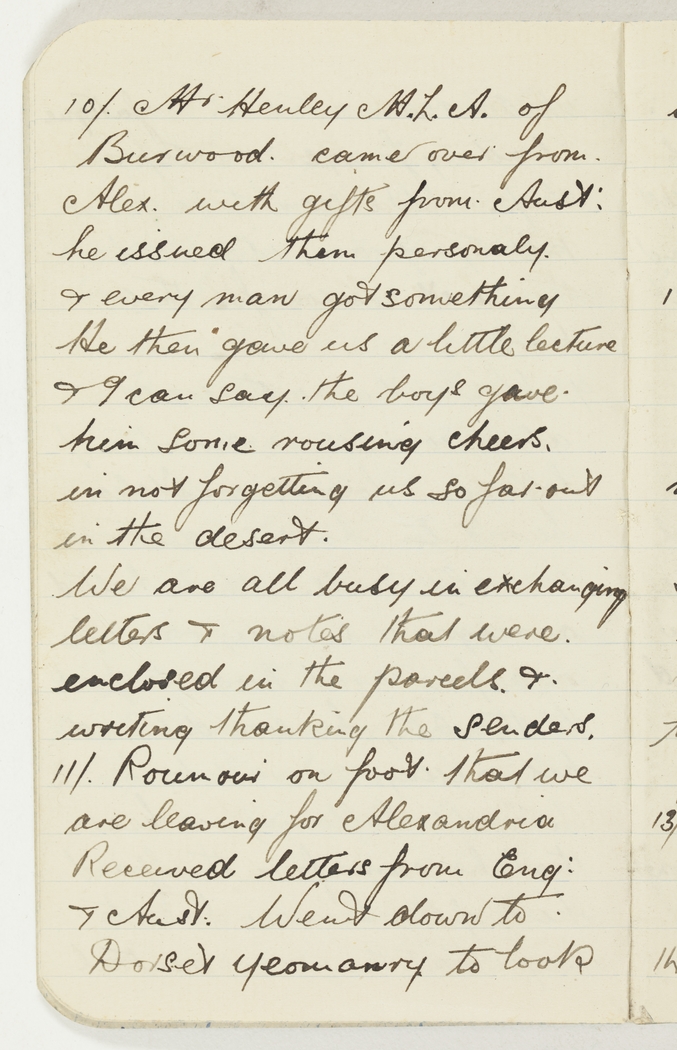 10/. Mr. Henley M.L.A. of
Burwood. came over from.
Alex. with gifts from. Aust:
he issued them personaly.
& every man got something
He then gave us a little lecture
& I can say. the boys gave.
him some rousing cheers.
in not forgetting us so far out
in the desert.
We are all busy in exchanging
letters & notes that were.
enclosed in the parcels. &.
writing thanking the senders.
11/. Roumour on foot. that we
are leaving for Alexandria
Received letters from Eng:
& Aust. Went down to.
Dorset yeomanry to look
13/